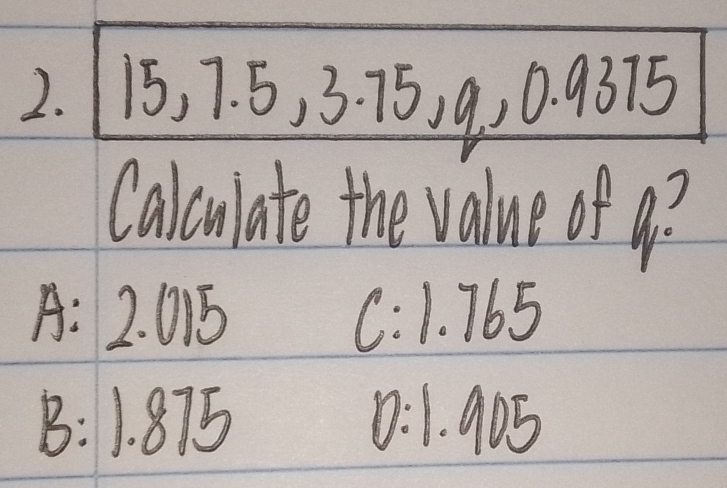 2. 15, 7.5, 3.75, q, 0.9375
Calculate the value of q?
A: 2.015 C: 1.765
B: 1.875 D: 1.905